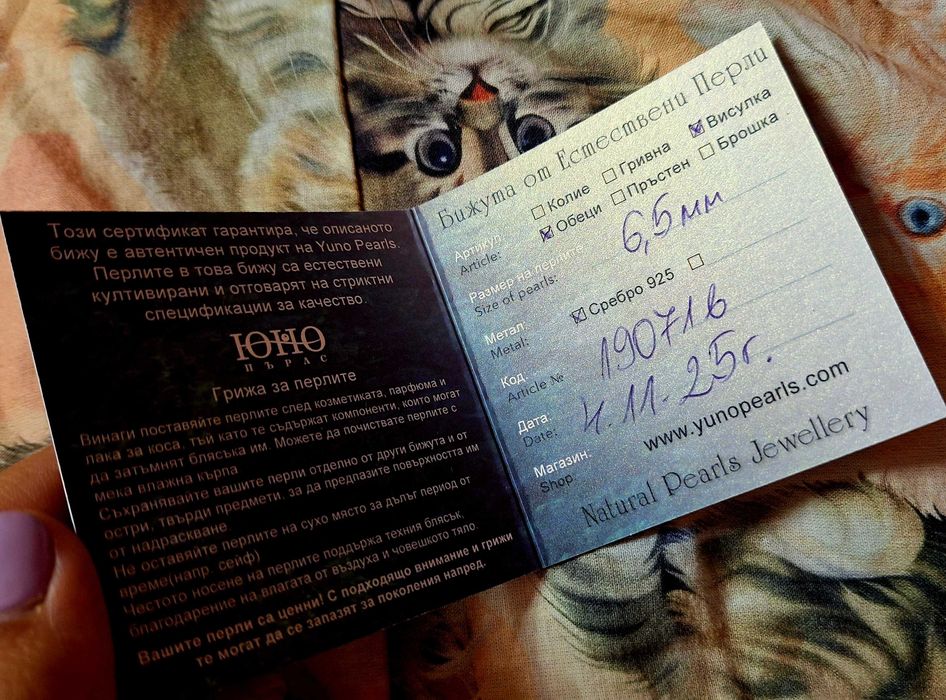 Този сертификат гарантира, че описаното
бижу е автентичен продукт на Yuno Pearls.
Перлите в това бижу са естествени
култивирани и отговарят на стриктни
спецификации за качество.
ЮНО
ПЪРЛС
Грижа за перлите
Винаги поставяйте перлите след козметиката, парфюма и
лака за коса, тъй като те съдържат компоненти, които могат
да затъмнят блясъка им. Можете да почиствате перлите с
мека влажна кърпа
Съхранявайте вашите перли отделно от други бижута и от
остри, твърди предмети, за да предпазите повърхността им
от надраскване
Не оставяйте перлите на сухо място за дълъг период от
време(напр. сейф)
Честото носене на перлите поддържа техния блясък,
благодарение на влагата от въздуха и човешкото тяло
Вашите перли са ценни! С подходящо внимание и грижи
те могат да се запазят за поколения напред.
Бижута от Естествени Перли
Артикул:
Article:
Колие Гривна Висулка
Обеци Пръстен Брошка
Размер на перлите:
Size of pearls:
6,5 мм
Метал:
Metal:
Сребро 925
Код:
Article №
19071в
Дата:
Date:
4.11.25г.
Магазин:
Shop
www.yunopearls.com
Natural Pearls Jewellery